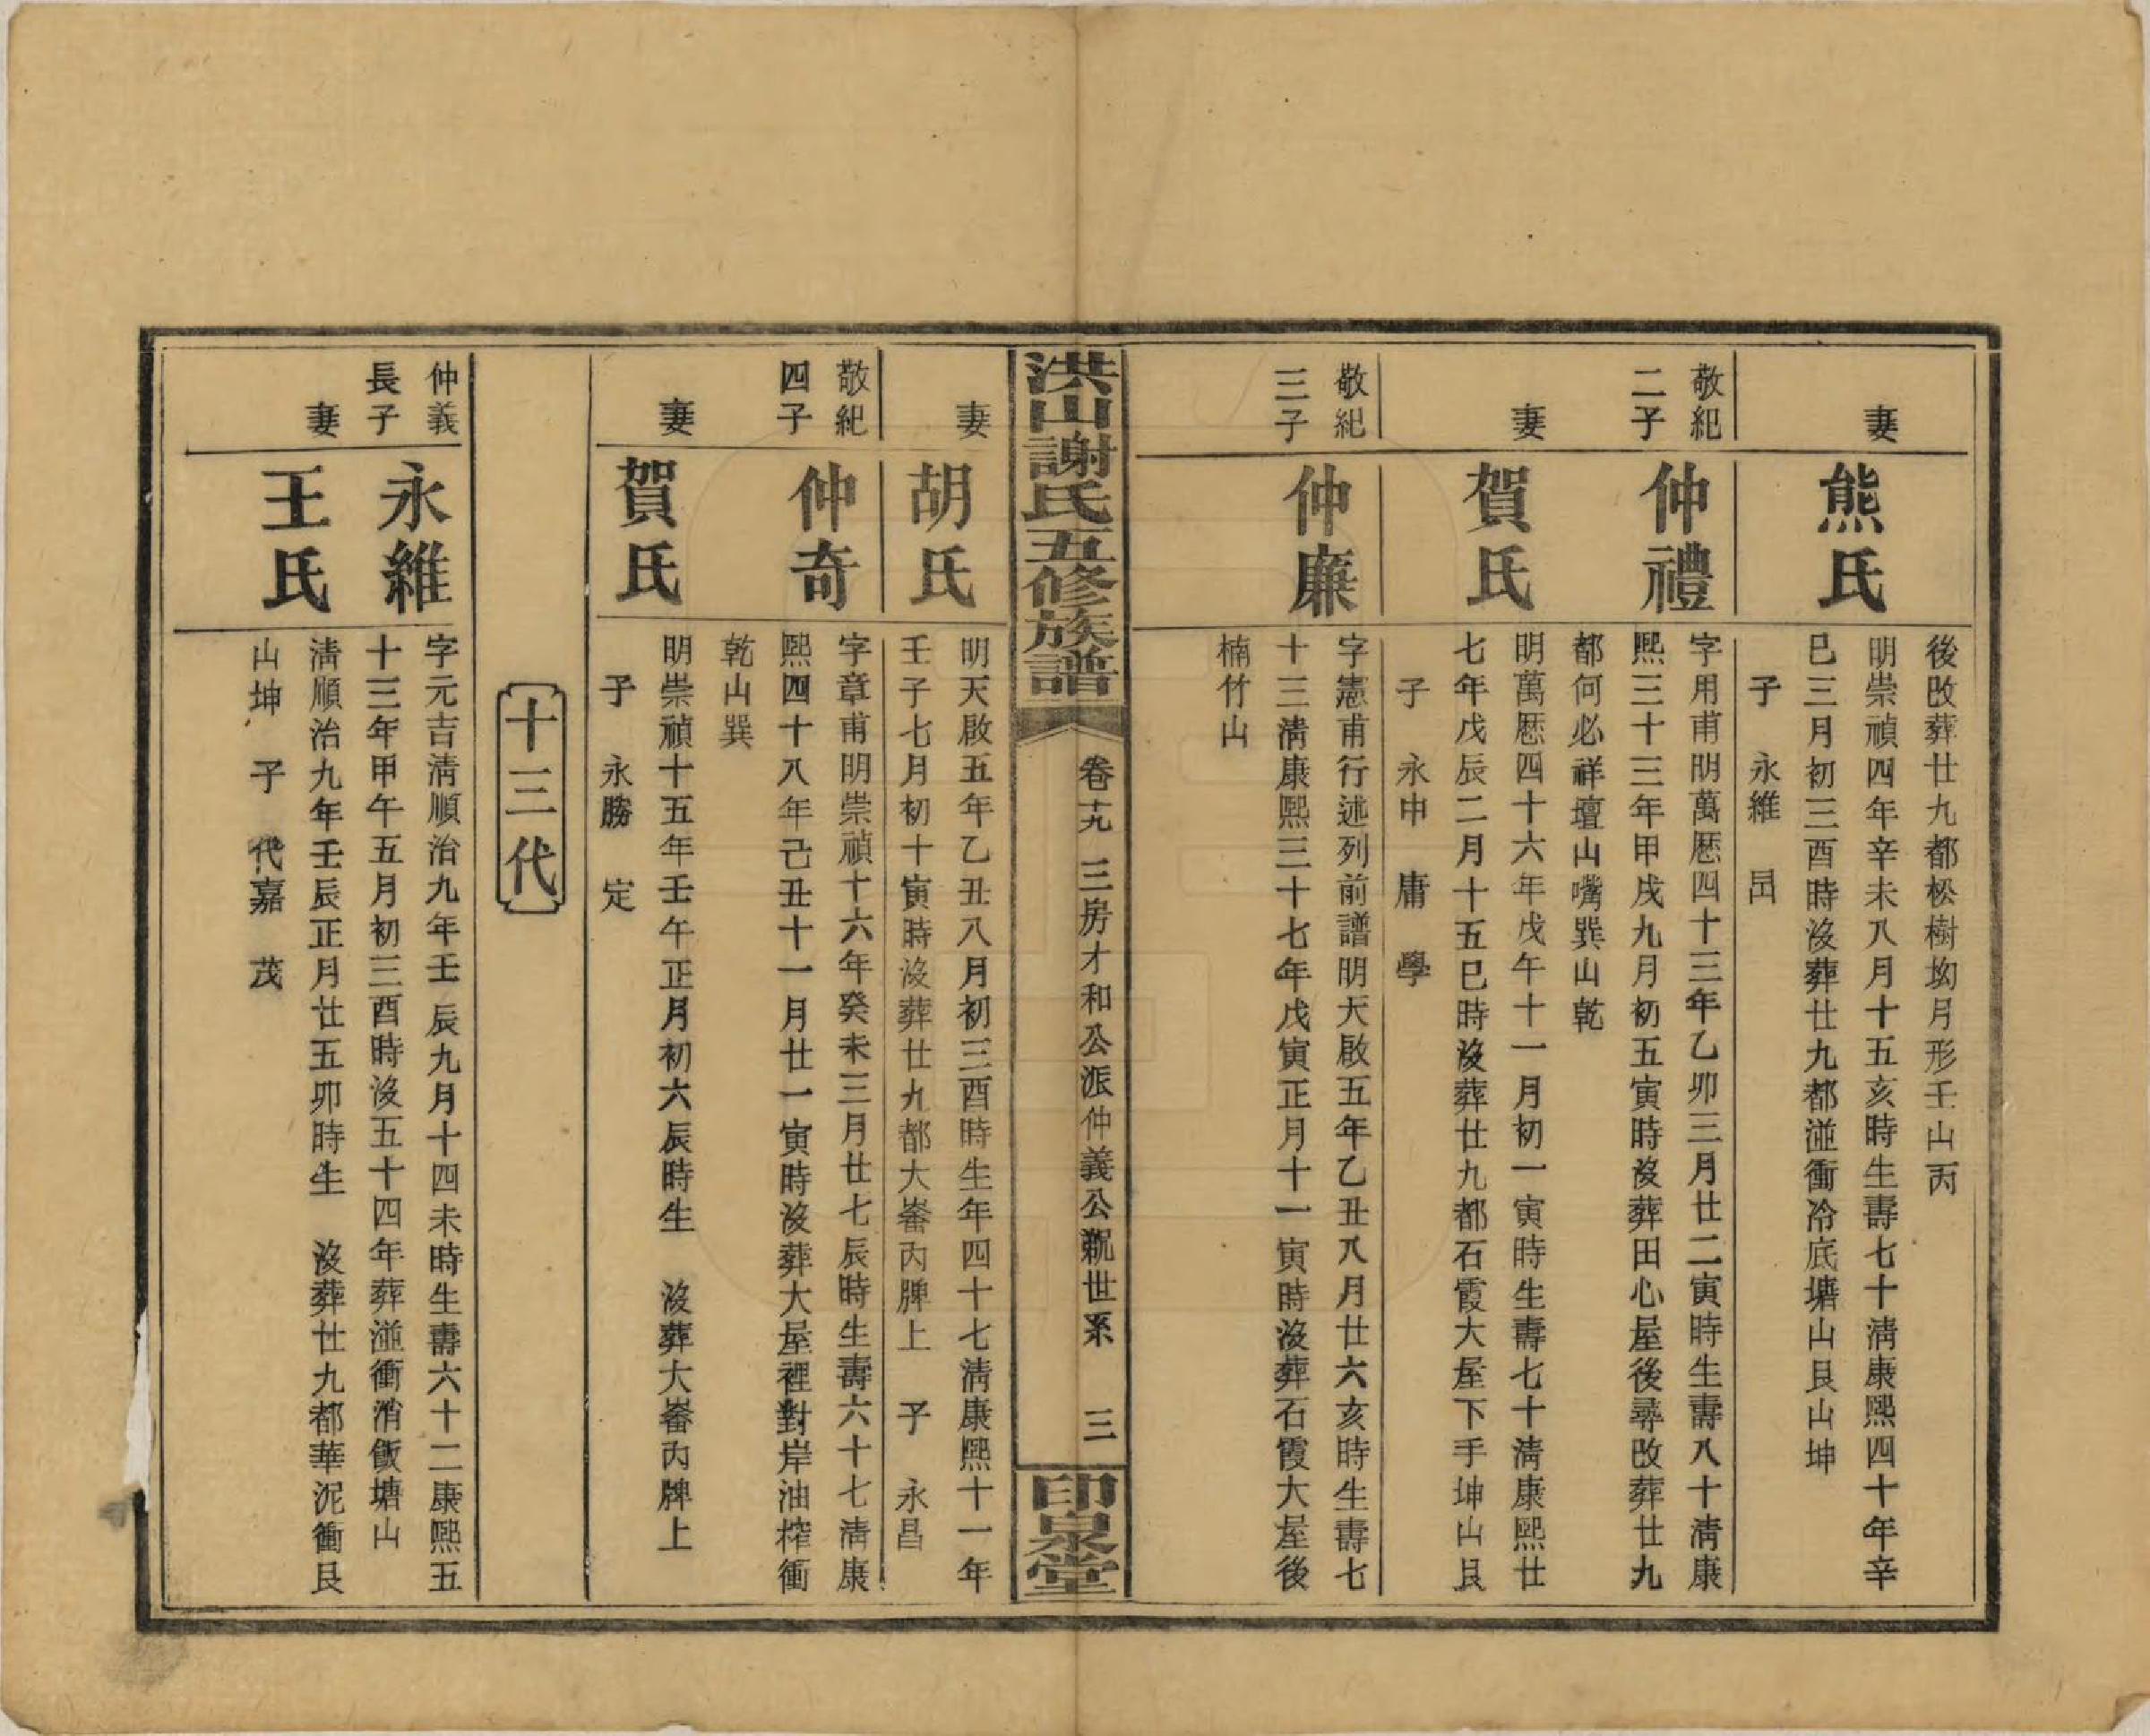 後改葬廿九都松樹坳月形壬山丙
妻
熊氏
明崇禎四年辛未八月十五亥時生壽七十清康熙四十年辛
巳三月初三酉時沒葬廿九都湴衝冷底塘山艮山坤
子 永維 𡇌
敬紀
二子
仲禮
字用甫明萬厯四十三年乙卯三月廿二寅時生壽八十清康
熙三十三年甲戌九月初五寅時沒葬田心屋後尋改葬廿九
都何必祥壇山嘴巽山乾
妻
賀氏
明萬厯四十六年戊午十一月初一寅時生壽七十清康熙廿
七年戊辰二月十五巳時沒葬廿九都石霞大屋下手坤山艮
子 永申 庸 學
敬紀
三子
仲廉
字憲甫行述列前譜明天啟五年乙丑八月廿六亥時生壽七
十三清康熙三十七年戊寅正月十一寅時沒葬石霞大屋後
楠竹山
洪山謝氏五修族譜
卷十九 三房才和公派仲義公覶世系 三
印泉堂
妻
胡氏
明天啟五年乙丑八月初三酉時生年四十七清康熙十一年
壬子七月初十寅時沒葬廿九都大崙內牌上 子 永昌
敬紀
四子
仲奇
字章甫明崇禎十六年癸未三月廿七辰時生壽六十七清康
熙四十八年己丑十一月廿一寅時沒葬大屋裡對岸油榨衝
乾山巽
妻
賀氏
明崇禎十五年壬午正月初六辰時生 沒葬大崙內牌上
子 永勝 定
十三代
仲義
長子
永維
字元吉清順治九年壬辰九月十四未時生壽六十二康熙五
十三年甲午五月初三酉時沒五十四年葬湴衝消飯塘山
妻
王氏
清順治九年壬辰正月廿五卯時生 沒葬廿九都華泥衝艮
山坤 子 代嘉 茂